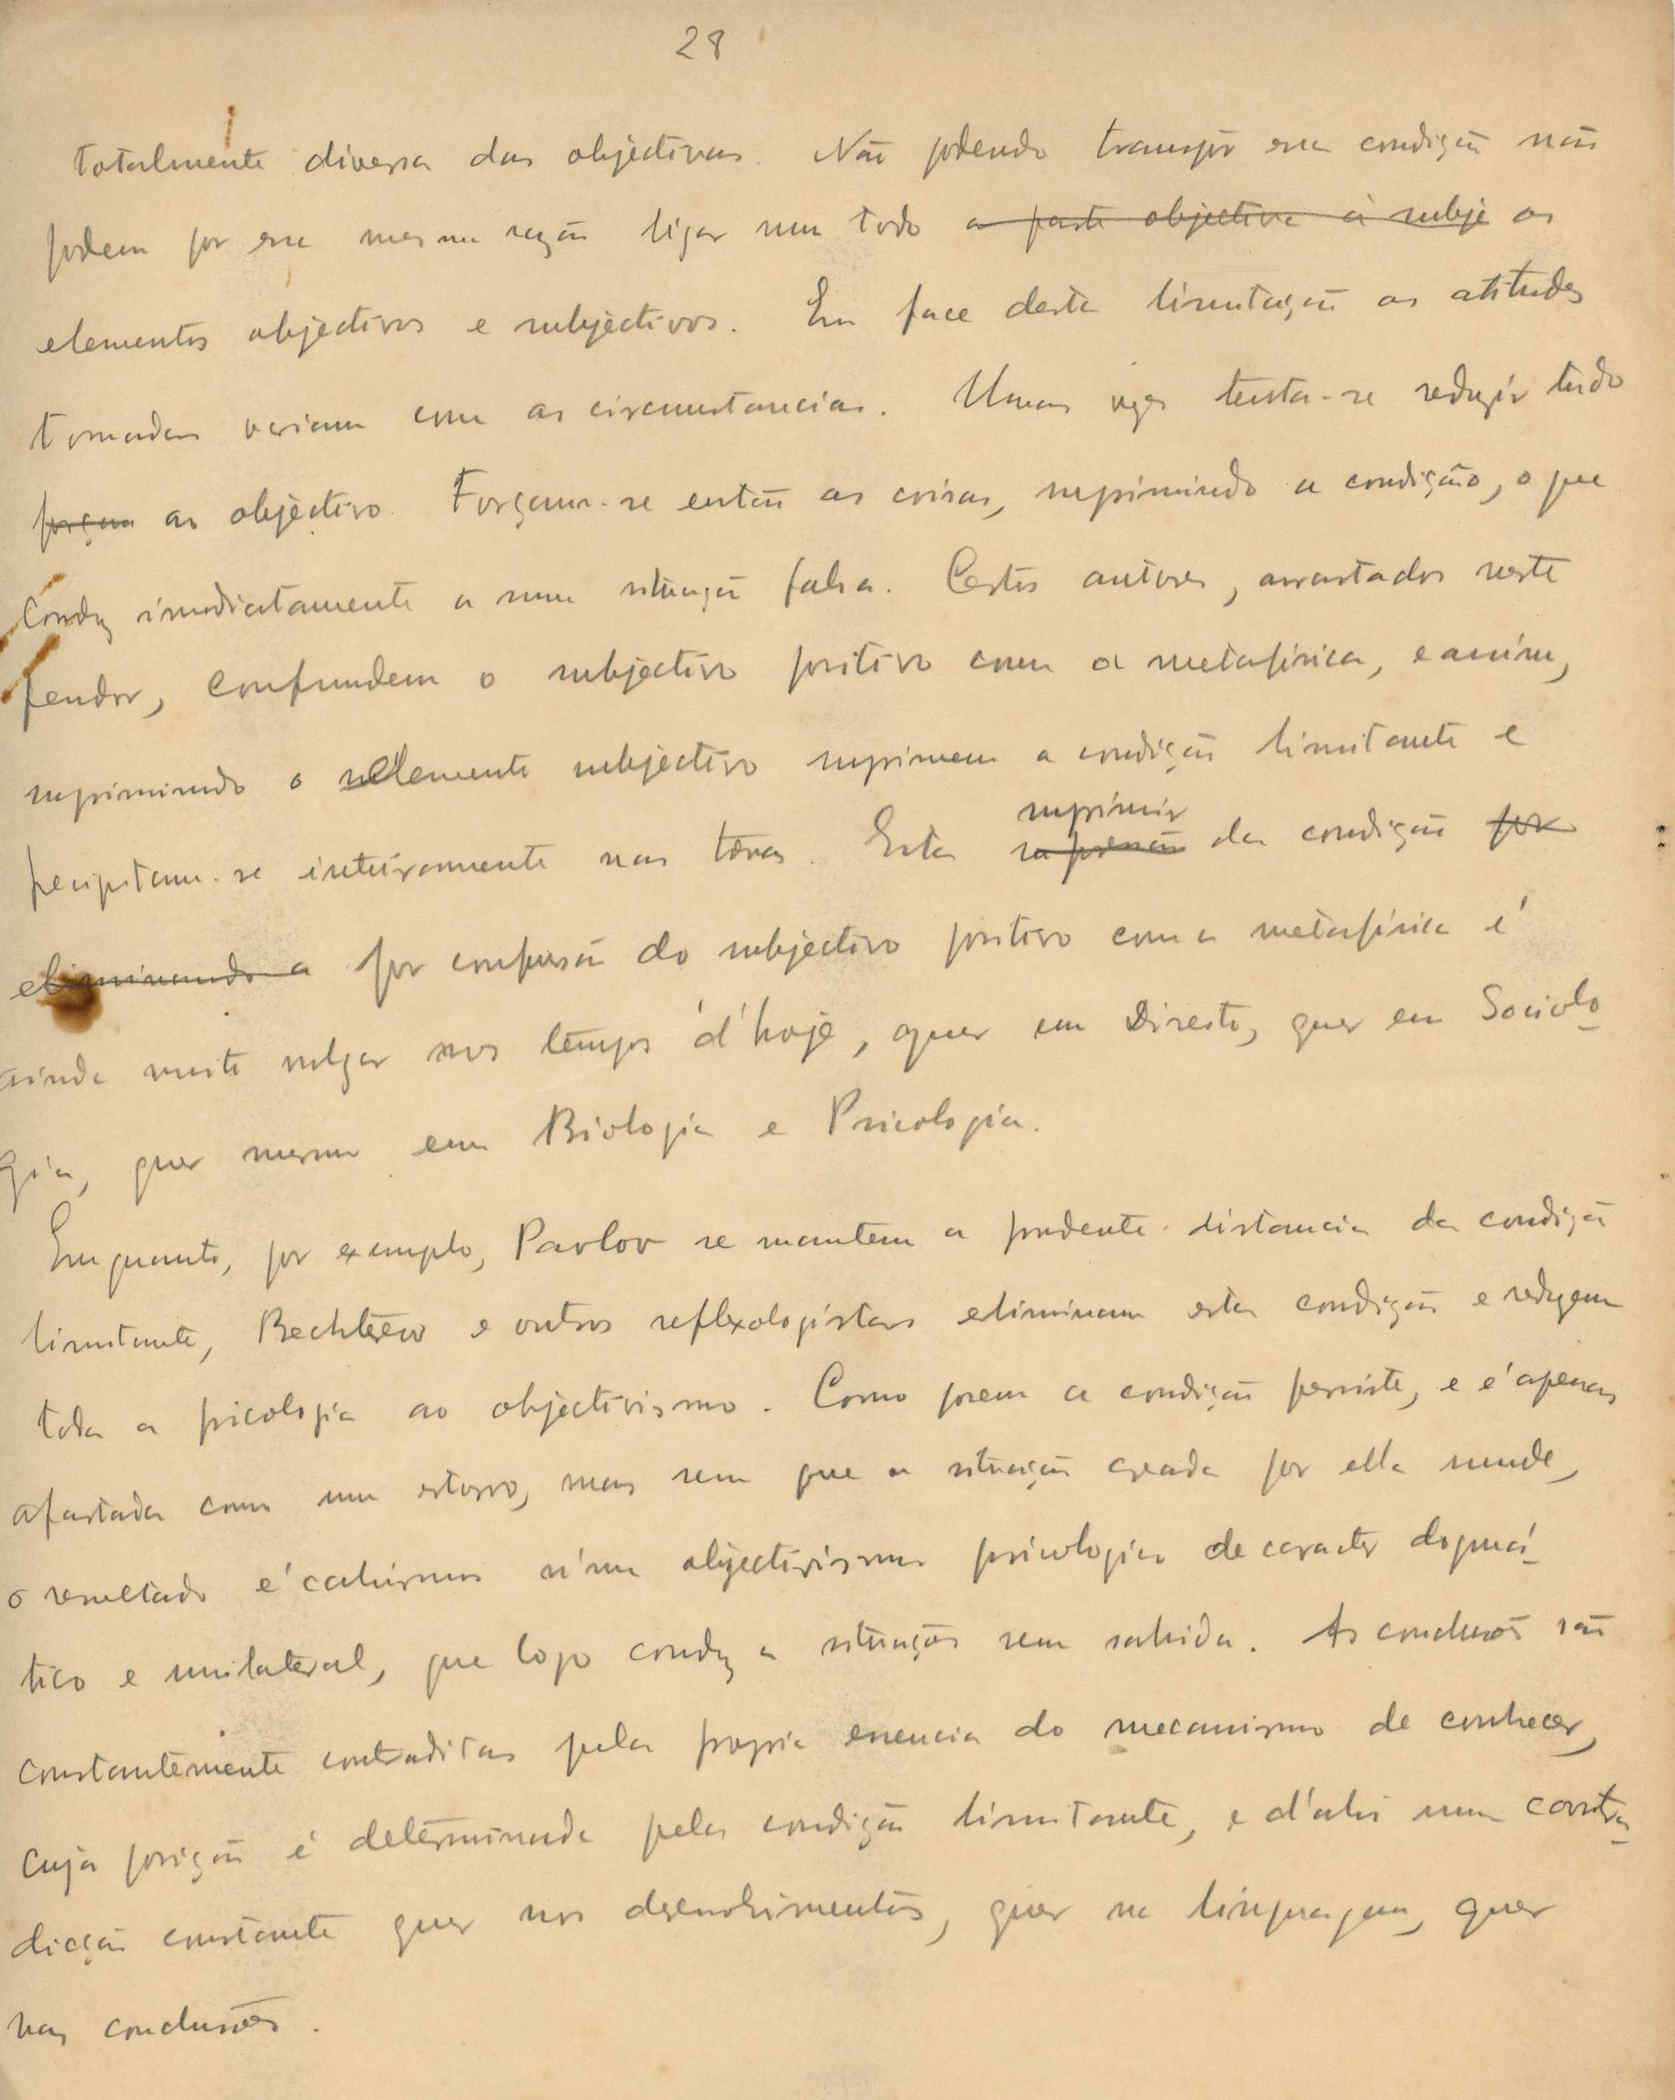 28
totalmente diversa das objectivas. Não podendo transpôr essa condição não
podem por essa mesma razão ligar num todo a parte objectiva á subje os
elementos objectivos e subjectivos. Em face desta limitação as atitudes
tomadas variam com as circumstancias. Umas vezes tenta-se reduzir tudo
forçam ao objectivo. Forçam-se então as coisas, suprimindo a condição, o que
conduz imediatamente a uma situação falsa. Certos autores, arrastados neste
pendor, confundem o subjectivo positivo com a metafisica, e assim,
suprimindo o elemento subjectivo suprimem a condição limitante e
precipitam-se inteiramente nas trevas. Este supressão suprimir da condição por
eliminando a por confusão do subjectivo positivo com a metafísica é
ainda muito vulgar nos tempos d'hoje, quer em Direito, quer em Sociolo-
gia, quer mesmo em Biologia e Psicologia.
Emquanto, por exemplo, Pavlov se mantem a prudente distancia da condição
limitante, Bechterew e outros reflexologistas eliminam esta condição e reduzem
toda a psicologia ao objectivismo. Como porem a condição persiste, e é apenas
afastada como um estorvo, mas sem que a situação creada por ella mude,
o resultado é cahirmos n'um objectivismo psicologico de caracter dogmá-
tico e unilateral, que logo conduz a situações sem sahida. As conclusões são
constantemente contraditas pela propria essencia do mecanismo de conhecer,
cuja posição é determinada pela condição limitante, e d'ahi uma contra-
dicção constante quer nos desenvolvimentos, quer na linguagem, quer
nas conclusões.